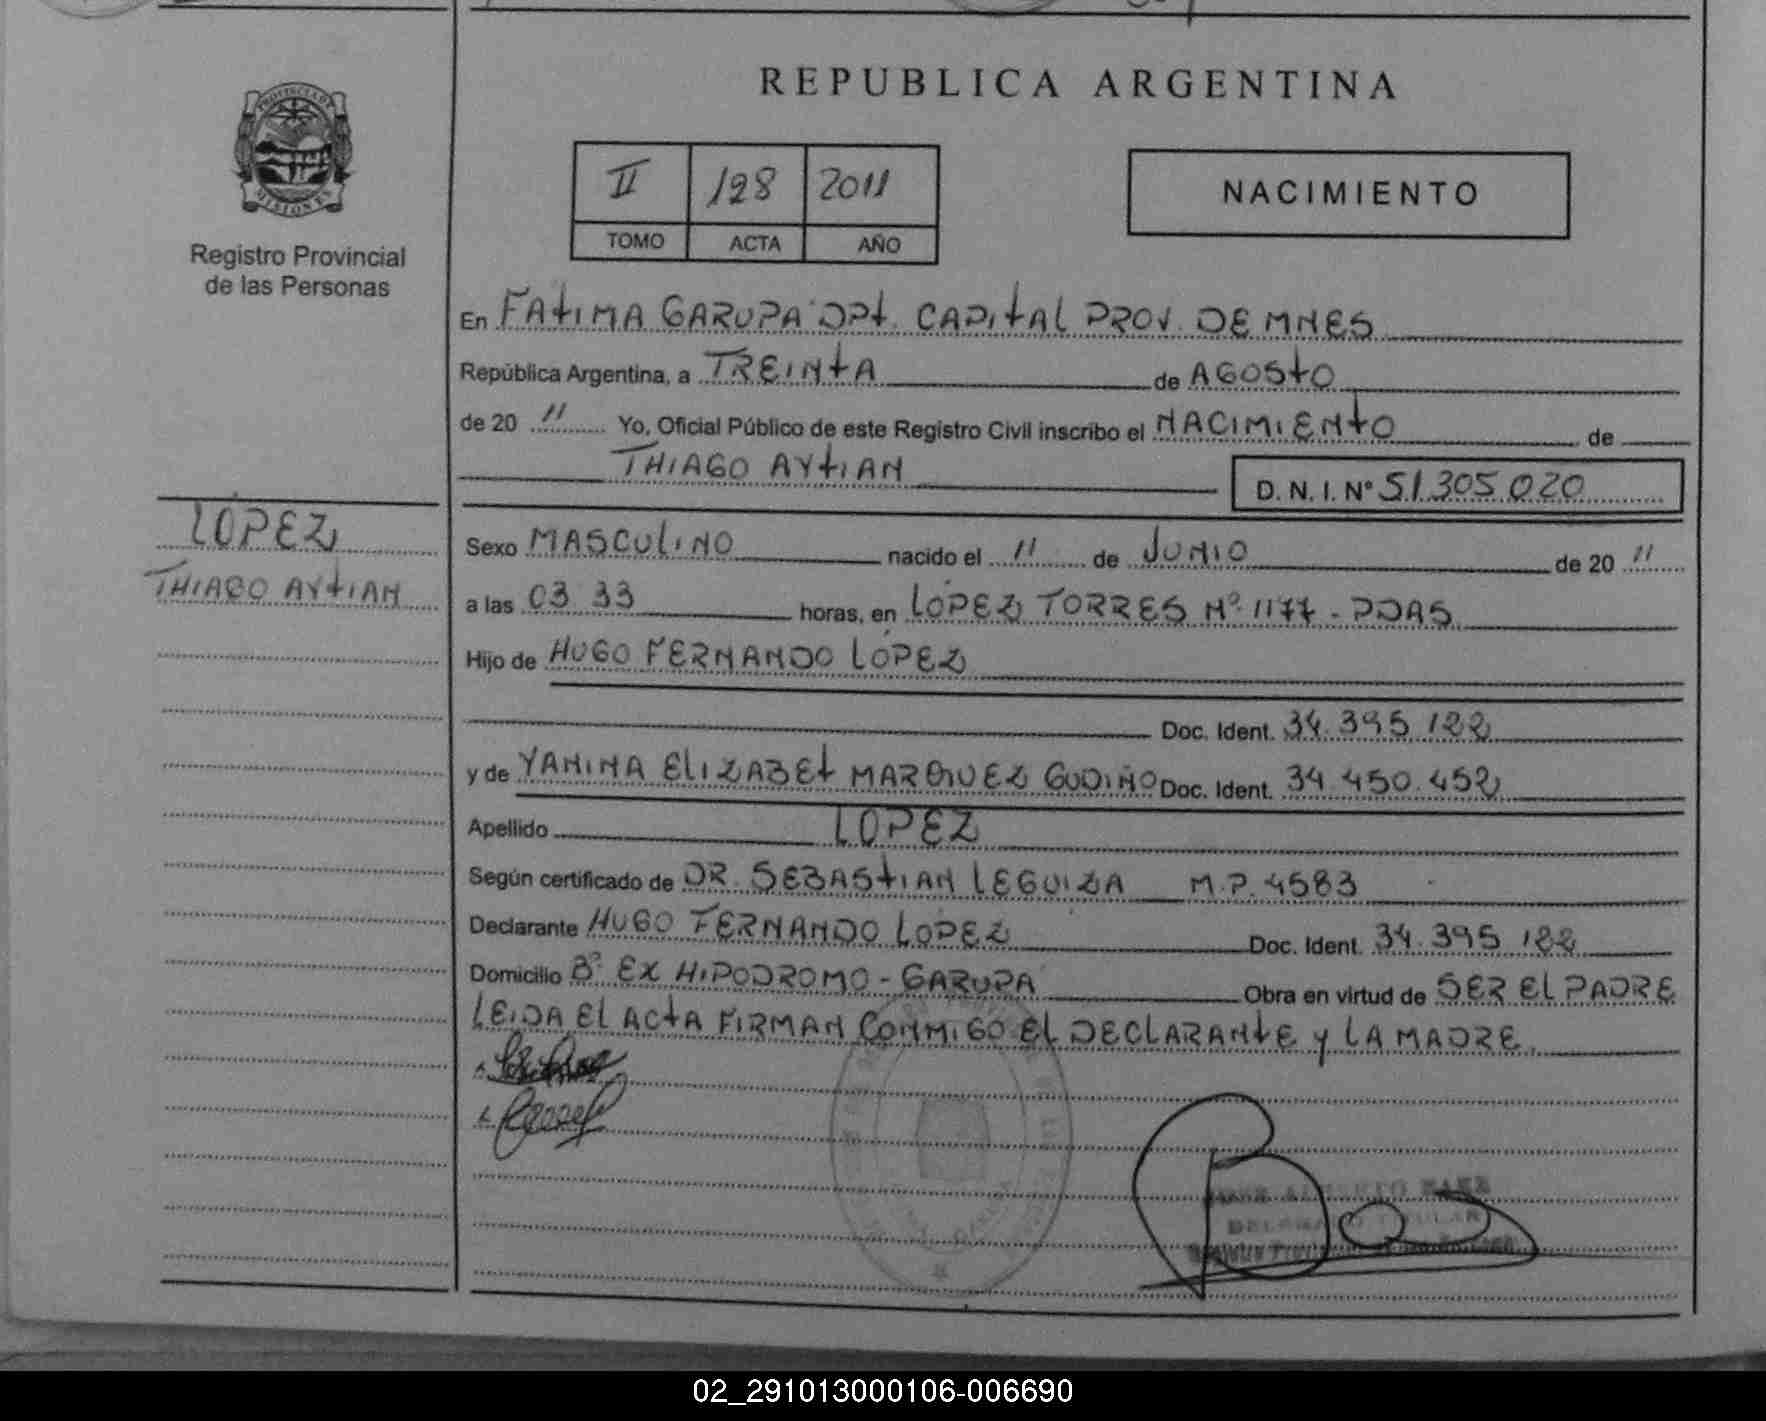 REPUBLICA ARGENTINA
PROVINCIA DE
MISIONES
Registro Provincial
de las Personas
II 128 2011
TOMO ACTA AÑO
NACIMIENTO
En FATIMA GARUPA DPT. CAPITAL PROV. DE MNES
República Argentina, a TREINTA de AGOSTO
de 20 11 Yo, Oficial Público de este Registro Civil inscribo el NACIMIENTO de
THIAGO AYTIAN D. N. I. N° 51.305.020
LOPEZ
THIAGO AYTIAN
Sexo MASCULINO nacido el 11 de JUNIO de 20 11
a las 03 33 horas, en LOPEZ TORRES Nº 1177 - PDAS
Hijo de HUGO FERNANDO LOPEZ
Doc. Ident. 34.395.122
y de YANINA ELIZABET MARQUEZ GUDIÑO Doc. Ident. 34.450.452
Apellido LOPEZ
Según certificado de DR. SEBASTIAN LEGUIZA M.P. 4583
Declarante HUGO FERNANDO LOPEZ Doc. Ident. 34.395.122
Domicilio Bº EX HIPODROMO - GARUPA Obra en virtud de SER EL PADRE
LEIDA EL ACTA FIRMAN CONMIGO EL DECLARANTE Y LA MADRE
ALBERTO
DELEGADO TITULAR
02_291013000106-006690